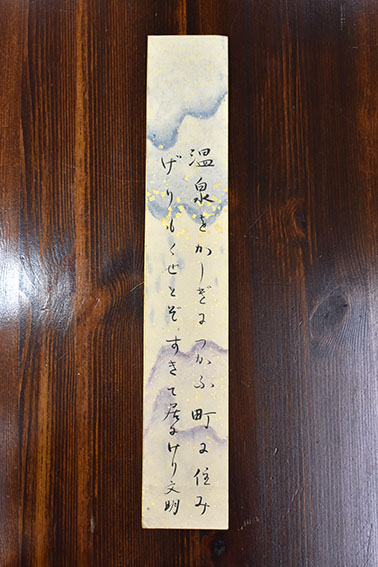 温泉をかしぎにつかふ町に住み
げりもくせとぞすきて居にけり 文明